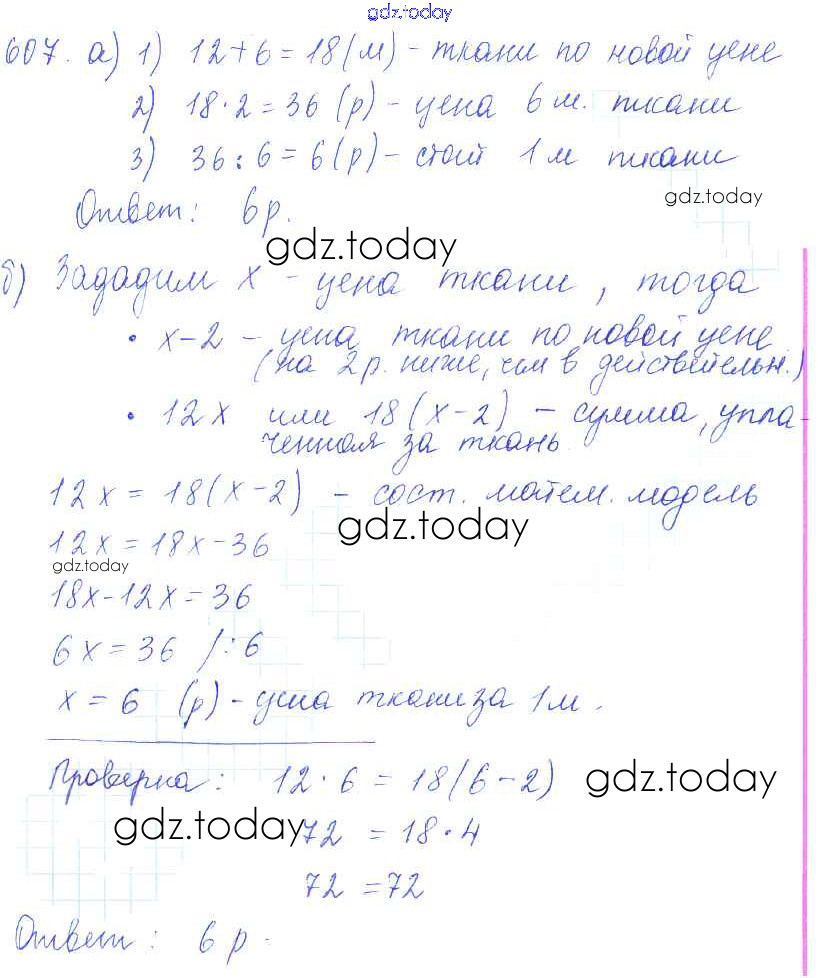 gdz.today
607. а) 1) 12+6=18(м) - ткани по новой цене
2) 18·2=36 (р) - цена 6 м. ткани
3) 36:6=6(р) - стоит 1 м ткани
gdz.today
Ответ: 6р.
gdz.today
б) Зададим x - цена ткани, тогда
• x-2 - цена ткани по новой цене
(на 2р. ниже, чем в действительн.)
• 12x или 18(x-2) - сумма, упла-
ченная за ткань
12x = 18(x-2) - сост. матем. модель
gdz.today
12x = 18x-36
gdz.today
18x-12x = 36
6x = 36 /:6
x = 6 (р) - цена ткани за 1м.
Проверка: 12·6 = 18(6-2)
gdz.today
gdz.today
72 = 18·4
72 = 72
Ответ: 6р.